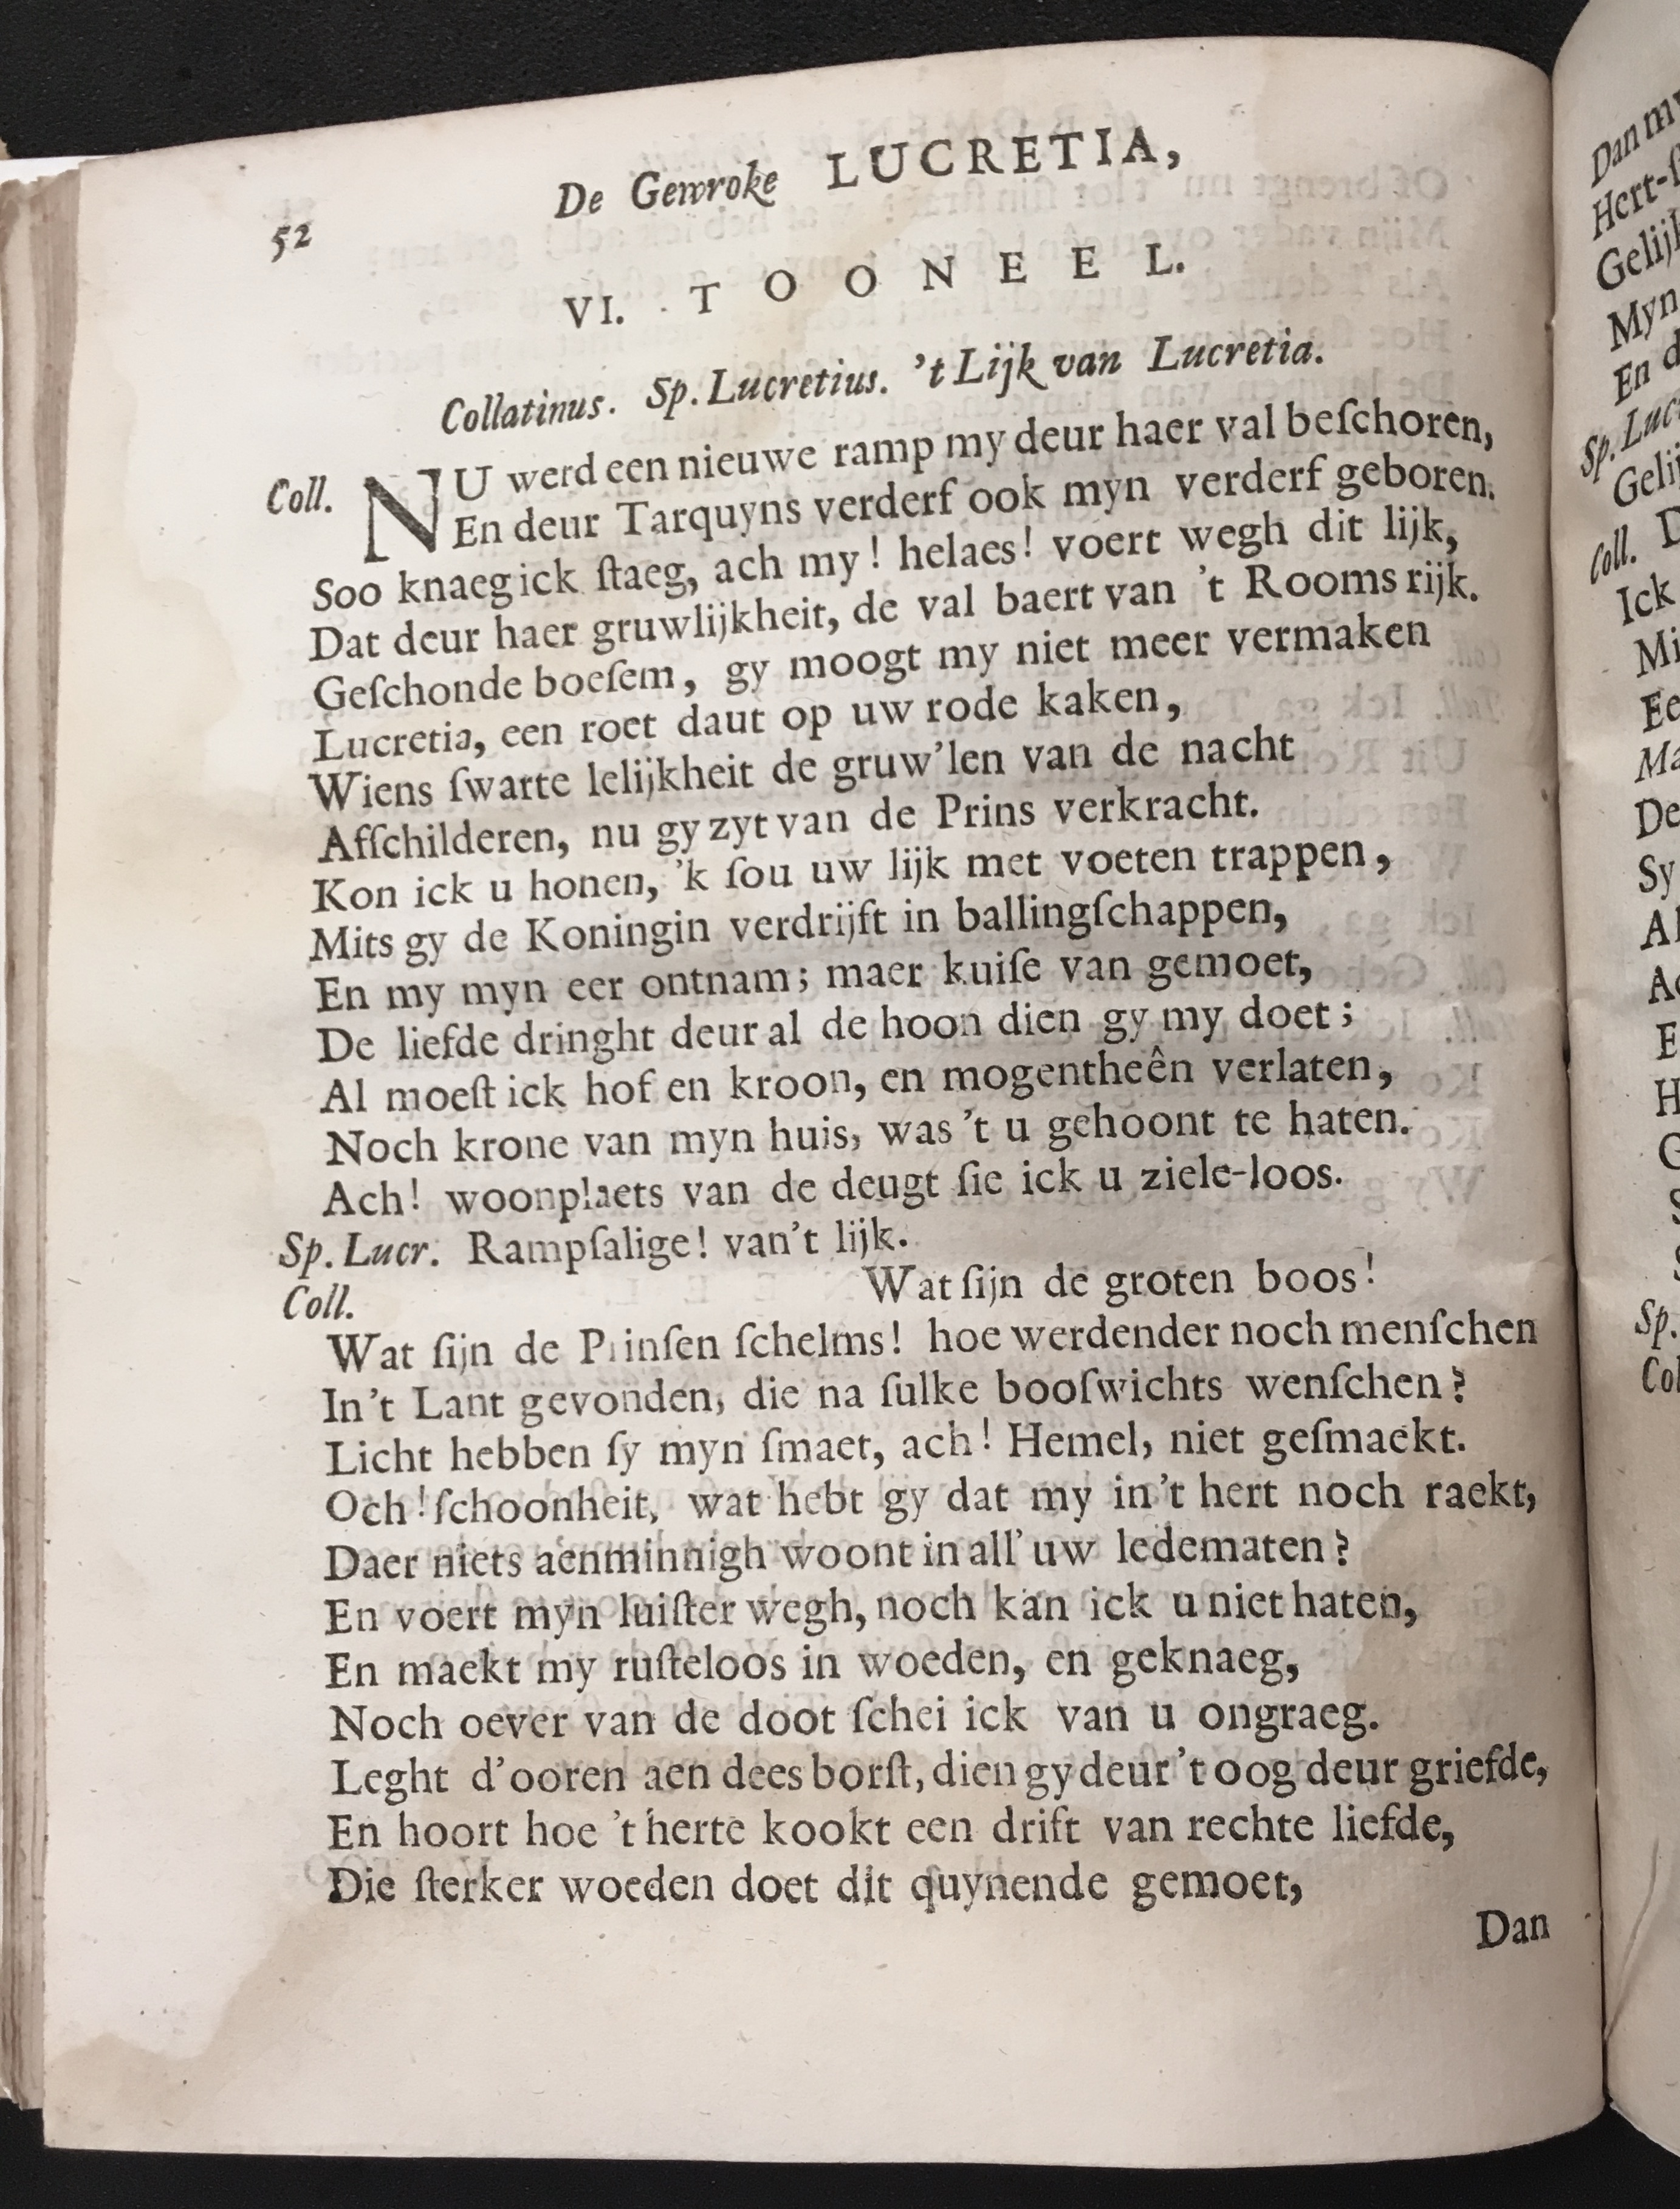 De Gewroke LUCRETIA,
52
VI. TOONEEL.
Collatinus. Sp. Lucretius. 't Lijk van Lucretia.
Coll. NU werd een nieuwe ramp my deur haer val beſchoren,
En deur Tarquyns verderf ook myn verderf geboren.
Soo knaeg ick ſtaeg, ach my! helaes! voert wegh dit lijk,
Dat deur haer gruwlijkheit, de val baert van 't Rooms rijk.
Geſchonde boeſem, gy moogt my niet meer vermaken
Lucretia, een roet daut op uw rode kaken,
Wiens ſwarte lelijkheit de gruw'len van de nacht
Afſchilderen, nu gy zyt van de Prins verkracht.
Kon ick u honen, 'k ſou uw lijk met voeten trappen,
Mits gy de Koningin verdrijft in ballingſchappen,
En my myn eer ontnam; maer kuiſe van gemoet,
De liefde dringht deur al de hoon dien gy my doet;
Al moeſt ick hof en kroon, en mogentheên verlaten,
Noch krone van myn huis, was 't u gehoont te haten.
Ach! woonplaets van de deugt ſie ick u ziele-loos.
Sp. Lucr. Rampſalige! van't lijk.
Coll. Wat ſijn de groten boos!
Wat ſijn de Prinſen ſchelms! hoe werdender noch menſchen
In't Lant gevonden, die na ſulke booſwichts wenſchen?
Licht hebben ſy myn ſmaet, ach! Hemel, niet geſmaekt.
Och! ſchoonheit, wat hebt gy dat my in't hert noch raekt,
Daer niets aenminnigh woont in all' uw ledematen?
En voert myn luiſter wegh, noch kan ick u niet haten,
En maekt my ruſteloos in woeden, en geknaeg,
Noch oever van de doot ſchei ick van u ongraeg.
Leght d'ooren aen dees borſt, dien gy deur 't oog deur griefde,
En hoort hoe 't herte kookt een drift van rechte liefde,
Die ſterker woeden doet dit quynende gemoet,
Dan
Hert-
Gelij
Myn
En d
Sp. Luc
Geli
Coll. D
Ick
Mi
Ee
Ma
De
Sy
Al
E
H
G
Sp.
Col